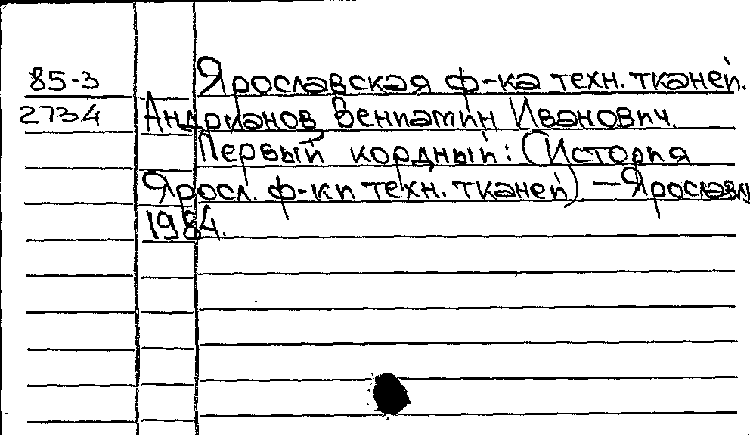 85-3 Ярославская ф-ка техн. тканей.
2734 Андрианов Вениамин Иванович.
Первый кордный: (История
Яросл. ф-ки техн. тканей) — Ярославль
1984.